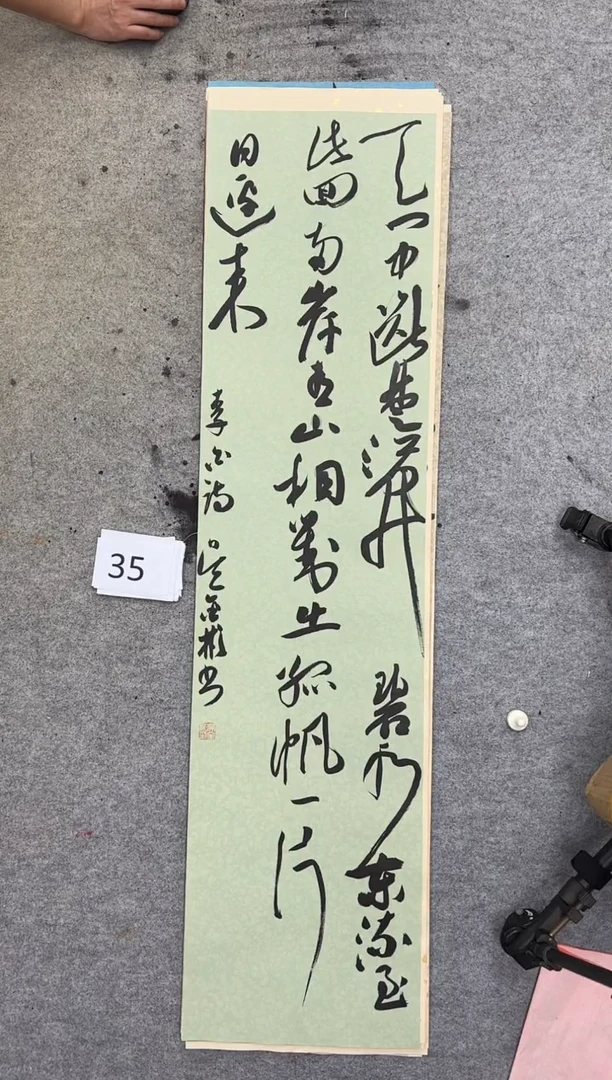 天门中断楚江开碧水東流至
此回两岸青山相對出孤帆一片
日邊来
李白诗 吴金彬书
35